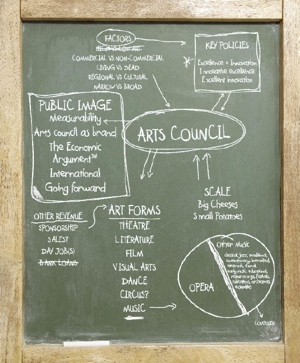 FACTORS
COMMERCIAL VS NON-COMMERCIAL
LIVING VS DEAD
REGIONAL VS CULTURAL
NARROW VS BROAD
KEY POLICIES
Excellence + Innovation
Innovative excellence
Excellent innovation
PUBLIC IMAGE
Measurability
Arts Council as brand
The Economic
Argument™
International
Going forward
ARTS COUNCIL
SCALE
Big Cheeses
Small Potatoes
OTHER REVENUE
SPONSORSHIP
SALES?
DAY JOB(S)
BANK LOANS
ART FORMS
THEATRE
LITERATURE
FILM
VISUAL ARTS
DANCE
CIRCUS?
MUSIC
Other Music
OPERA